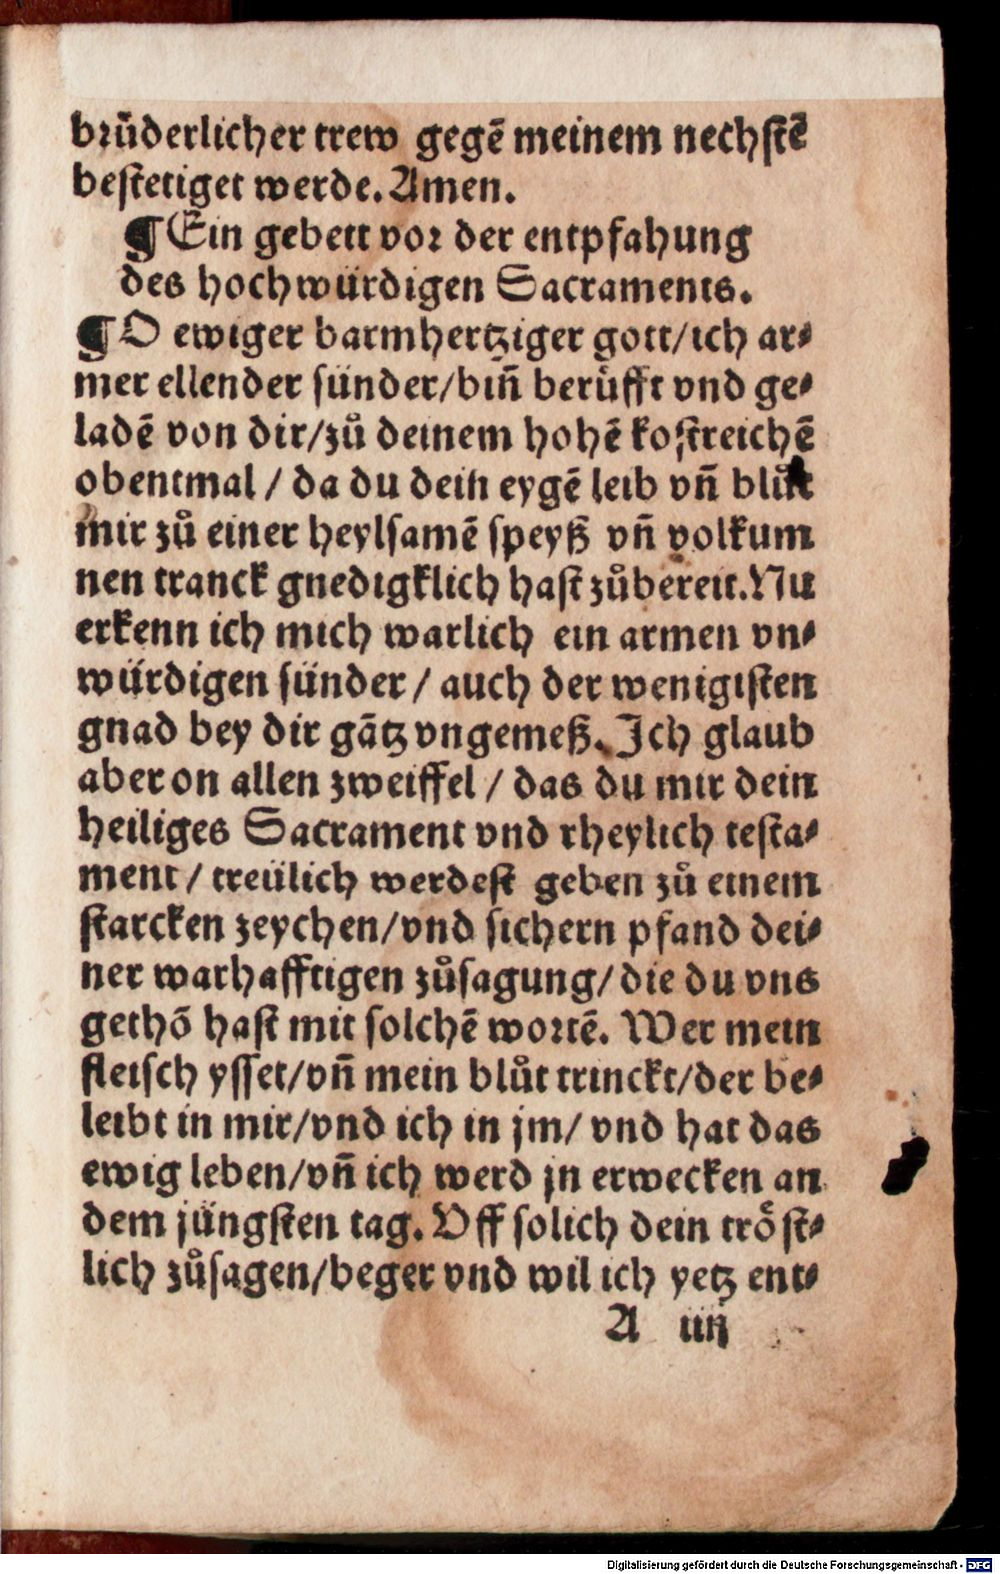 brüderlicher trew gegē meinem nechstē
bestetiget werde. Amen.
¶Ein gebett vor der entpfahung
des hochwürdigen Sacraments.
¶O ewiger barmhertziger gott/ich ar⸗
mer ellender sünder/biñ berüfft vnd ge⸗
ladē von dir/zů deinem hohē kostreichē
obentmal / da du dein eygē leib vñ blůt
mir zů einer heylsamē speyß vñ volkum
nen tranck gnedigklich hast zůbereit. Nu
erkenn ich mich warlich ein armen vn⸗
würdigen sünder / auch der wenigisten
gnad bey dir gātz vngemeß. Ich glaub
aber on allen zweiffel / das du mir dein
heiliges Sacrament vnd rheylich testa⸗
ment / treülich werdest geben zů einem
starcken zeychen/vnd sichern pfand dei⸗
ner warhafftigen zůsagung/die du vns
gethō hast mit solchē wortē. Wer mein
fleisch ysset/vñ mein blůt trinckt/der be⸗
leibt in mir/vnd ich in jm/ vnd hat das
ewig leben/vñ ich werd jn erwecken an
dem jüngsten tag. Vff solich dein tröst⸗
lich zůsagen/beger vnd wil ich yetz ent⸗
A iiij
Digitalisierung gefördert durch die Deutsche Forschungsgemeinschaft - DFG